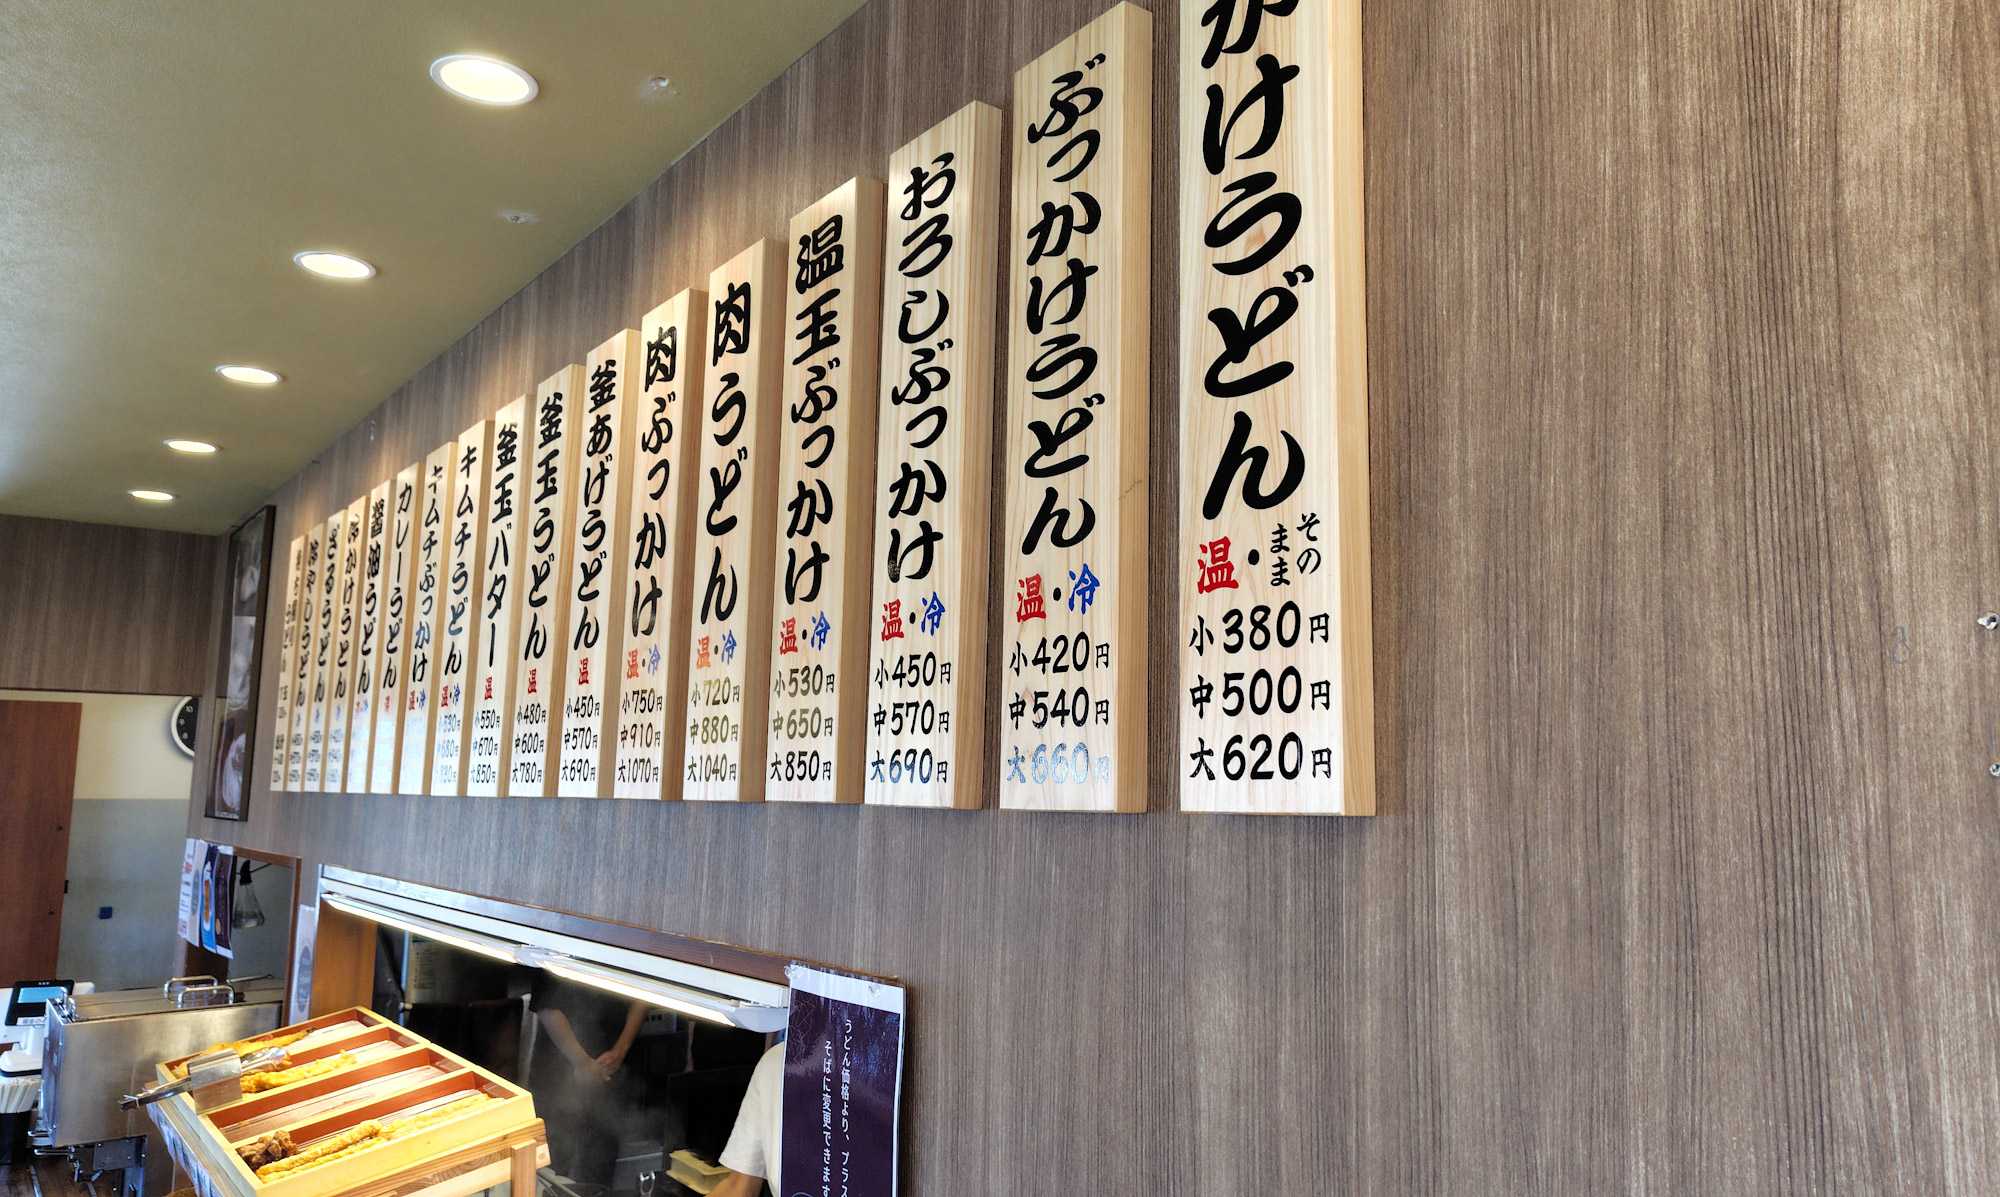 かけうどん
温・そのまま
小380円
中500円
大620円
ぶっかけうどん
温・冷
小420円
中540円
大660円
おろしぶっかけ
温・冷
小450円
中570円
大690円
温玉ぶっかけ
温・冷
小530円
中650円
大850円
肉うどん
温・冷
小720円
中880円
大1040円
肉ぶっかけ
温・冷
小750円
中910円
大1070円
釜あげうどん
温
小450円
中570円
大690円
釜玉うどん
温
小480円
中600円
大780円
釜玉バター
温
小550円
中670円
大850円
キムチうどん
温・冷
小530円
中680円
キムチぶっかけ
温・冷
カレーうどん
温
醤油うどん
冷かけうどん
ざるうどん
冷やしうどん
うどん価格より、プラス
そばに変更できます